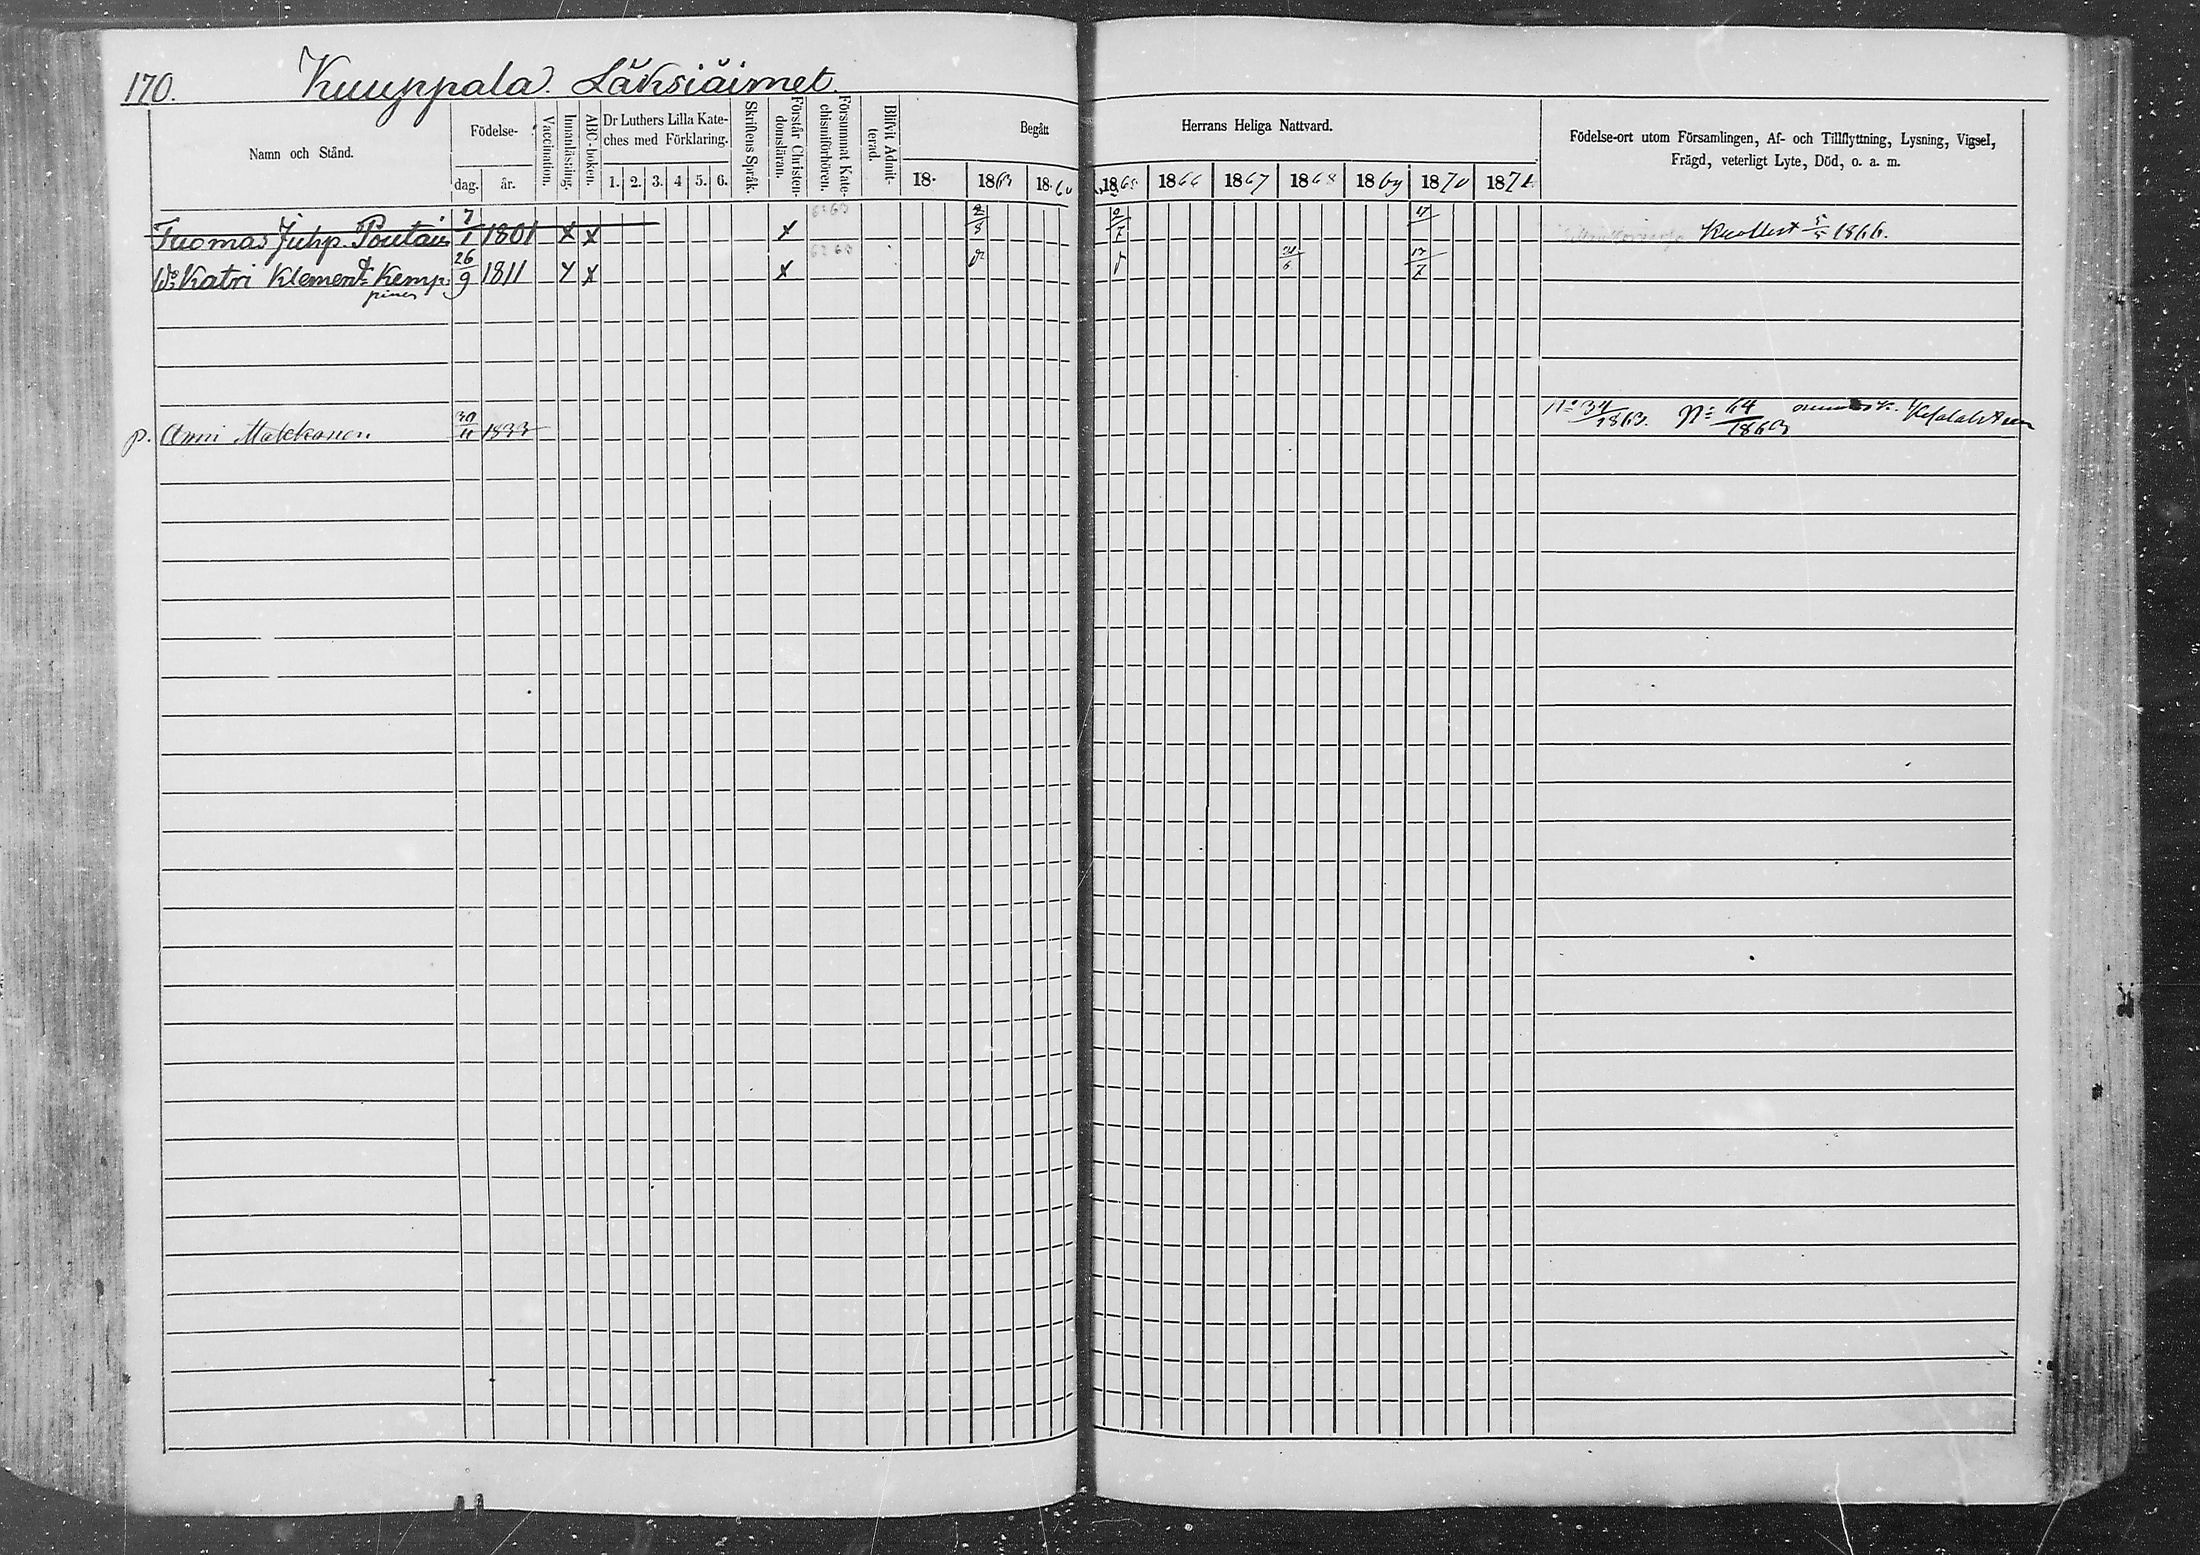 170. Kuuppala. Läksiäimet.
Namn och Stånd.
Födelse-
dag. år.
Vaccination.
Innanläsning.
ABC-boken.
Dr Luthers Lilla Kate-
ches med Förklaring.
1. 2. 3. 4 5. 6.
Skriftens Språk.
Förstår Christen-
domsläran.
Försummat Kate-
chismiförhören.
Blifvit Admit-
terad.
Begått Herrans Heliga Nattvard.
18 1863 18 1865 1866 1867 1868 1869 1870 1871
Födelse-ort utom Församlingen, Af- och Tillflyttning, Lysning, Vigsel,
Frägd, veterligt Lyte, Död, o. a. m.
Tuomas Juhp. Poutain 7/1 1801 x x x 2/8 2/7 17 Kuollut 5/5 1866.
Katri Klement. Kemp- 26/9 1811 x x x 17/7
pinen
p. Anni 30/11 1833 No 34/1863. No 64/1863